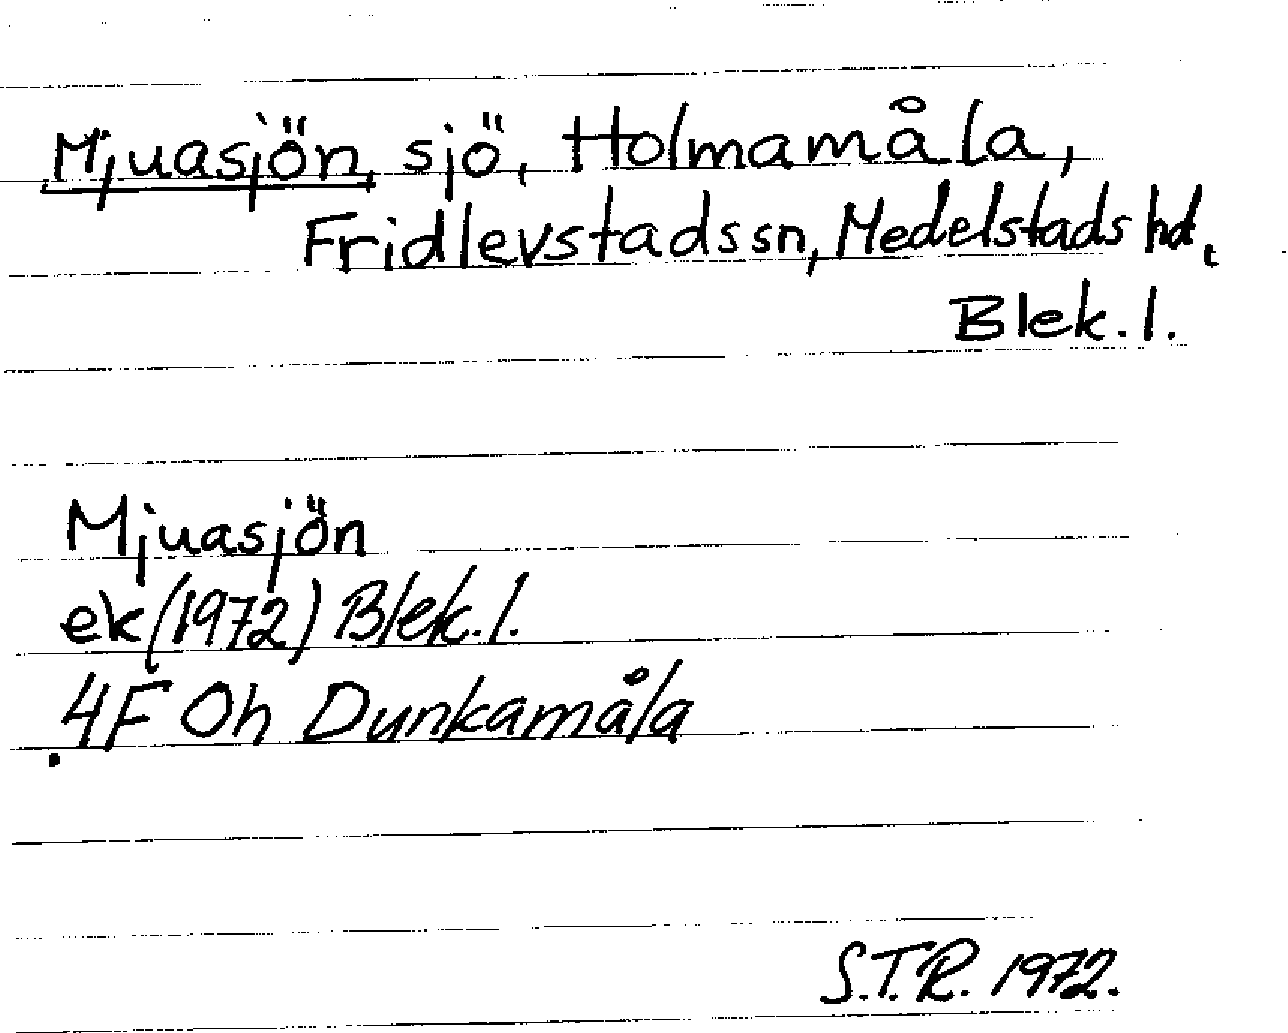 Mjuasjön, sjö, Holmamåla,
Fridlevstads sn, Medelstads hd,
Blek. l.
Mjuasjön
ek (1972) Blek. l.
4F Oh Dunkamåla
S.T.R. 1972.